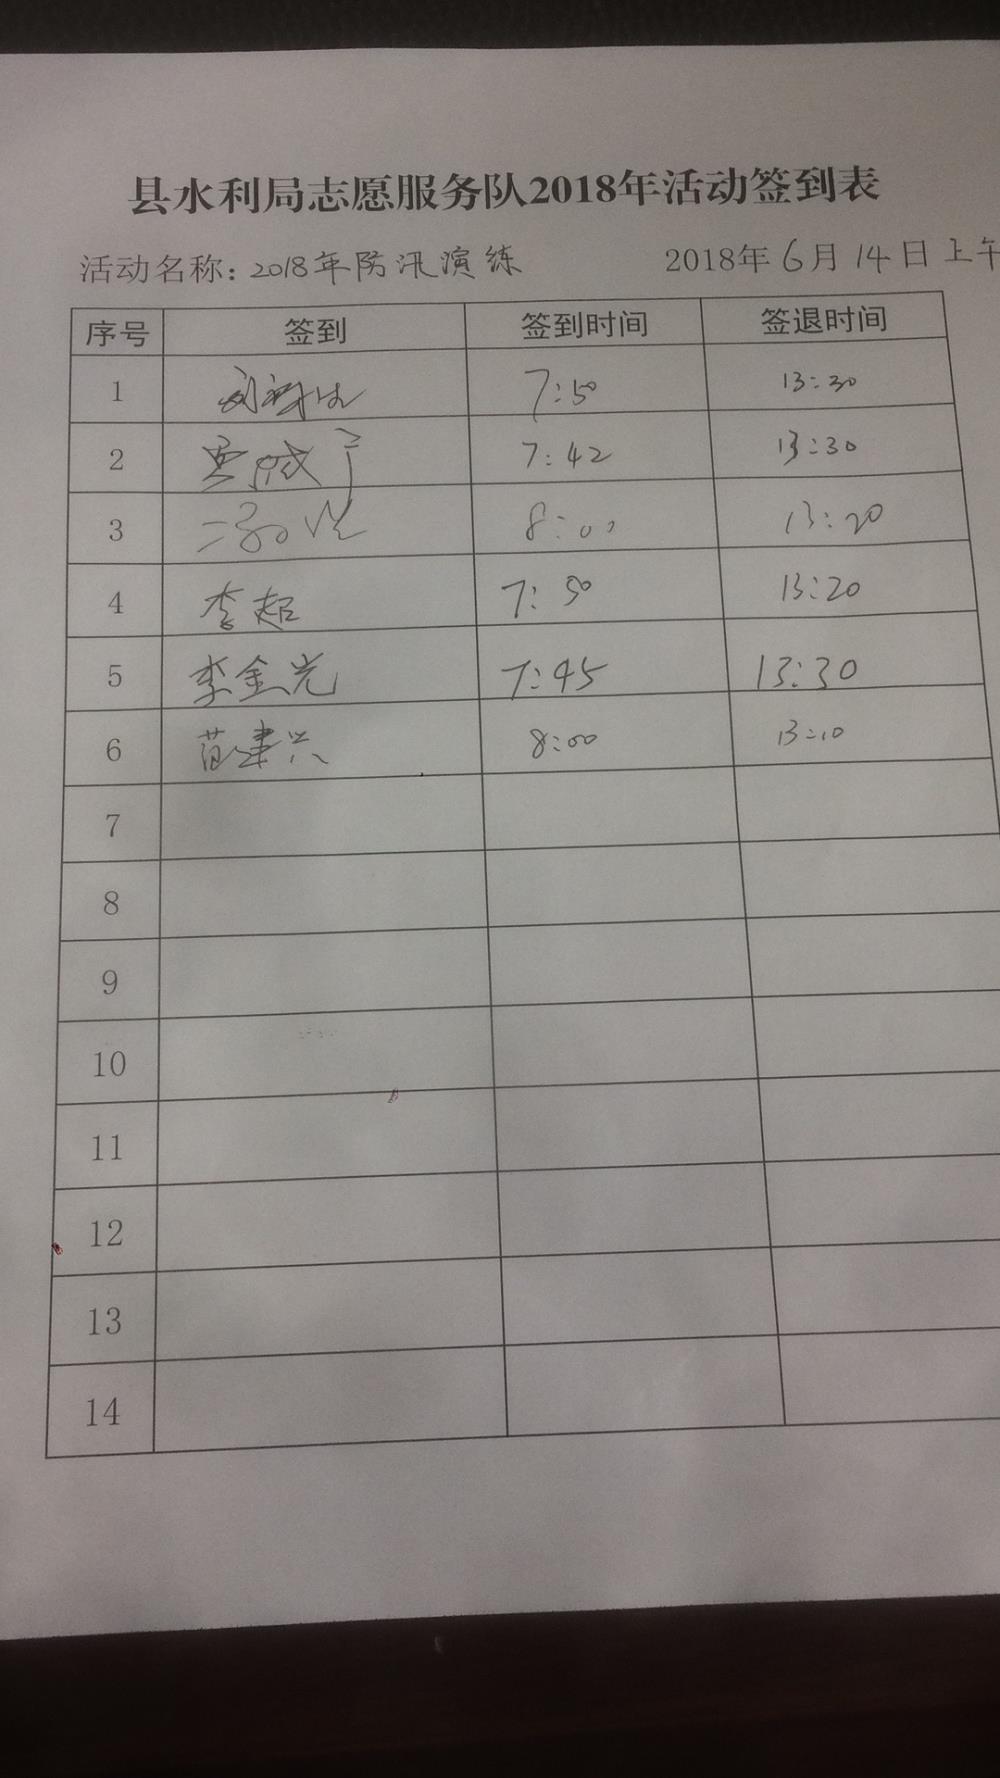 县水利局志愿服务队2018年活动签到表
活动名称：2018年防汛演练 2018年6月14日上午
序号 签到 签到时间 签退时间
1 7:50 13:30
2 7:42 13:30
3 8:00 13:20
4 李超 7:50 13:20
5 李金光 7:45 13:30
6 范建兴 8:00 13:10
7
8
9
10
11
12
13
14